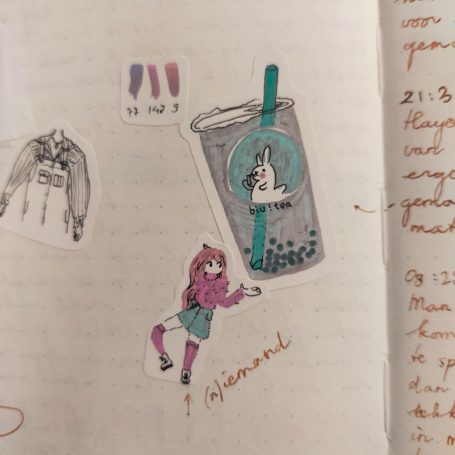 77 147 9
biu!tea
(n)iemand
voor
gema
21:3
Haye
van
erge
gema
mat
08:22
Man
kom
te sp
dan
in m